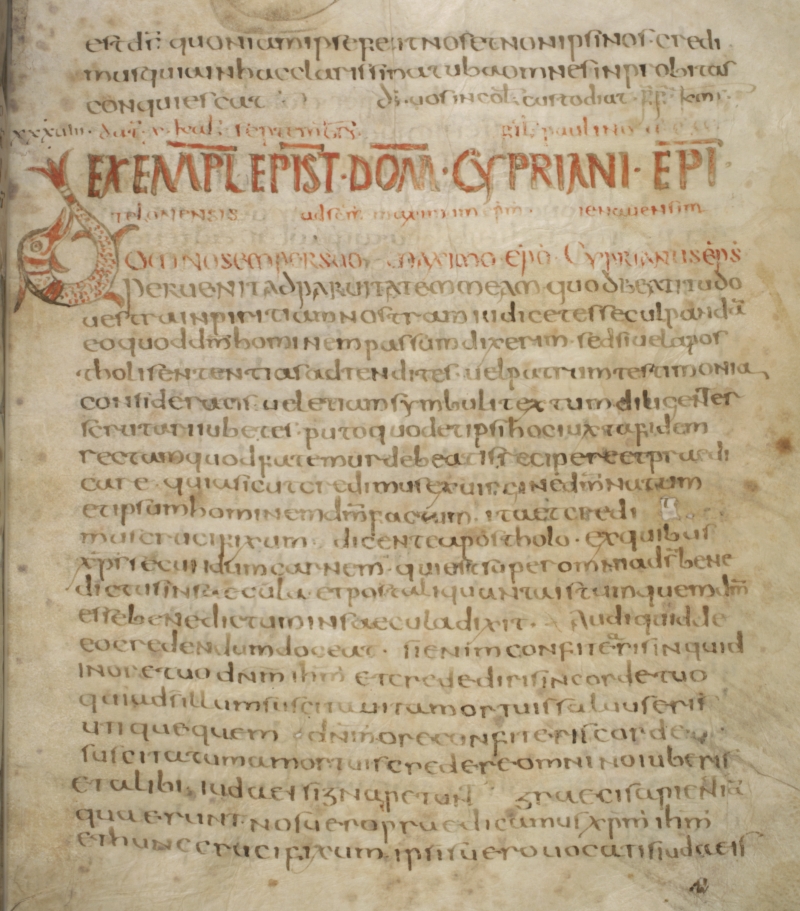 est dix quoniam ipse fecit nos et non ipsi nos credi
mus quia in hac clarissima tuba omnes inprobitas
conquiescat d͞s uos incol custodiat
xxxuiiii dat u kal septembris paulino
EXEMPL EPIST DOM CYPRIANI EPI
telonensis ad s͞c͞m maximum ep͞m ienauensim
Domino semper suo maximo ep͞o Cyprianus ep͞s
Peruenit ad paruitatem meam quod beatitudo
uestra inpiritiam nostram iudicet esse culpandā
eo quod d͞m hominem passum dixerim sed si uel apos
tholi sententias adtendites uel patrum testimonia
consideratis uel etiam symbuli textum diligenter
scrutari iubetes puto quod et ipsi hoc iuxta fidem
rectam quod fatemur debeatis recipere et praedi
care quia sicut credimus ex uirgine d͞m natum
et ipsum hominem d͞m factum ita et credi
mus crucifixum dicente apostholo ex quibus
x͞p͞s secundum carnem qui est super omnia d͞s bene
dictus in saecula et post aliquanta istum quem d͞m
esse benedictum in saecula dixit Audi quid de
eo credendum doceat si enim confiteris inquid
in ore tuo d͞n͞m ih͞m et credederis in corde tuo
quia d͞s illum suscitauit a mortuis saluus eris
utique quem d͞n͞m ore confiteris corde
suscitatum a mortuis credere omnino iuberis
et alibi iudaei signa petunt graeci sapientiā
quaerunt nos uero praedicamus x͞p͞m ih͞m
et hunc crucifixum ipsis uero uocatis iudaeis